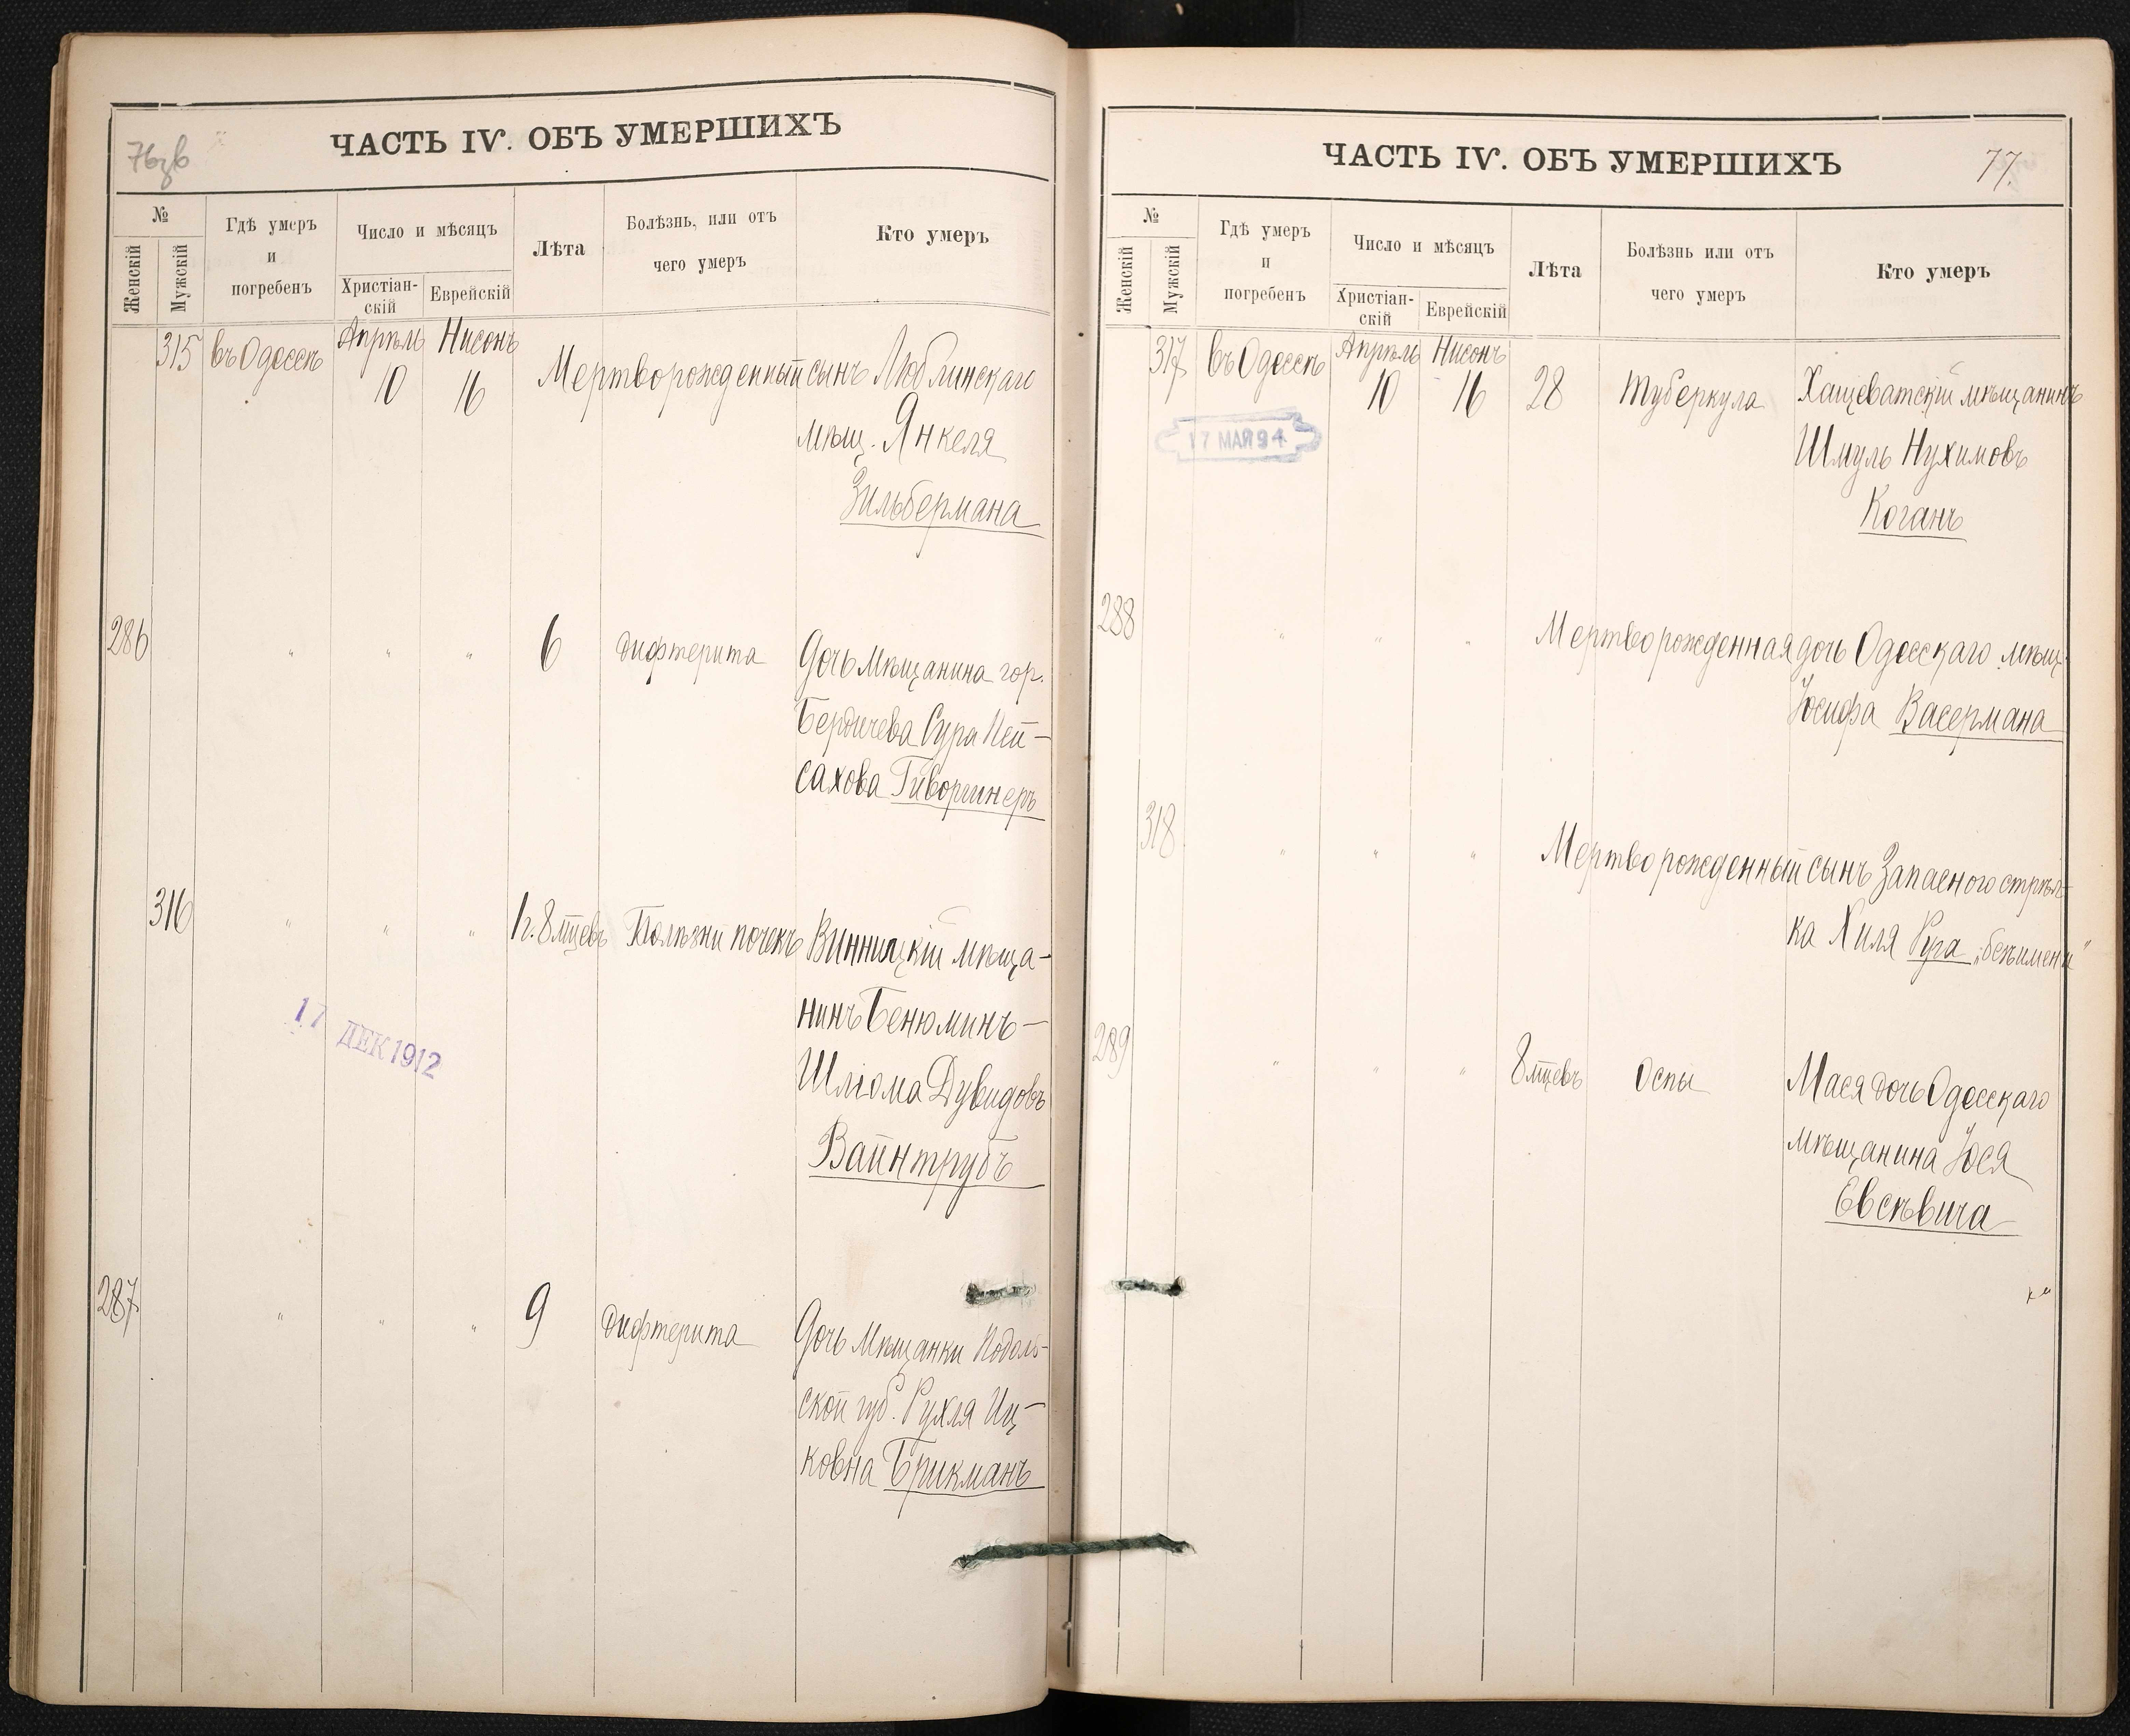 76зв
ЧАСТЬ IV. ОБЪ УМЕРШИХЪ
№
Женскій
Мужскій
Гдѣ умеръ
и
погребенъ
Число и мѣсяцъ
Христіан-
скій
Еврейскій
Лѣта
Болѣзнь, или отъ
чего умеръ
Кто умеръ
315 въ Одессѣ Апрѣль 10 Нисонъ 16 Мертворожденный сынъ Люблинскаго
мѣщ. Янкеля
Зильбермана
286 " " " 6 дифтерита Дочь мѣщанина гор.
Бердичева Сура Пей-
сахова
316 " " " 1 г. 8 мцевъ Болѣзни почекъ Винницкій мѣща-
нинъ Бенюминъ-
Шлiома Дувидовъ
Вайнтрубъ
17 ДЕК 1912
287 " " " 9 дифтерита Дочь Мѣщанки Подоль-
ской губ. Рухля Иц-
ковна Брикманъ
77.
ЧАСТЬ IV. ОБЪ УМЕРШИХЪ
№
Женскій
Мужскій
Гдѣ умеръ
и
погребенъ
Число и мѣсяцъ
Христіан-
скій
Еврейскій
Лѣта
Болѣзнь или отъ
чего умеръ
Кто умеръ
317 въ Одессѣ Апрѣль 10 Нисонъ 16 28 Туберкула Хащеватскій мѣщанинъ
Шмуль Нухимовъ
Коганъ
17 МАЯ 94
288 " " " Мертворожденная дочь Одесскаго мѣщ.
Іосифа Васермана
318 " " " Мертворожденный сынъ Запасного стрѣл-
ка Хиля Руга „безъимени"
289 " " " 8 мцевъ Оспы Мася дочь Одесскаго
мѣщанина Іося
Евсѣвича